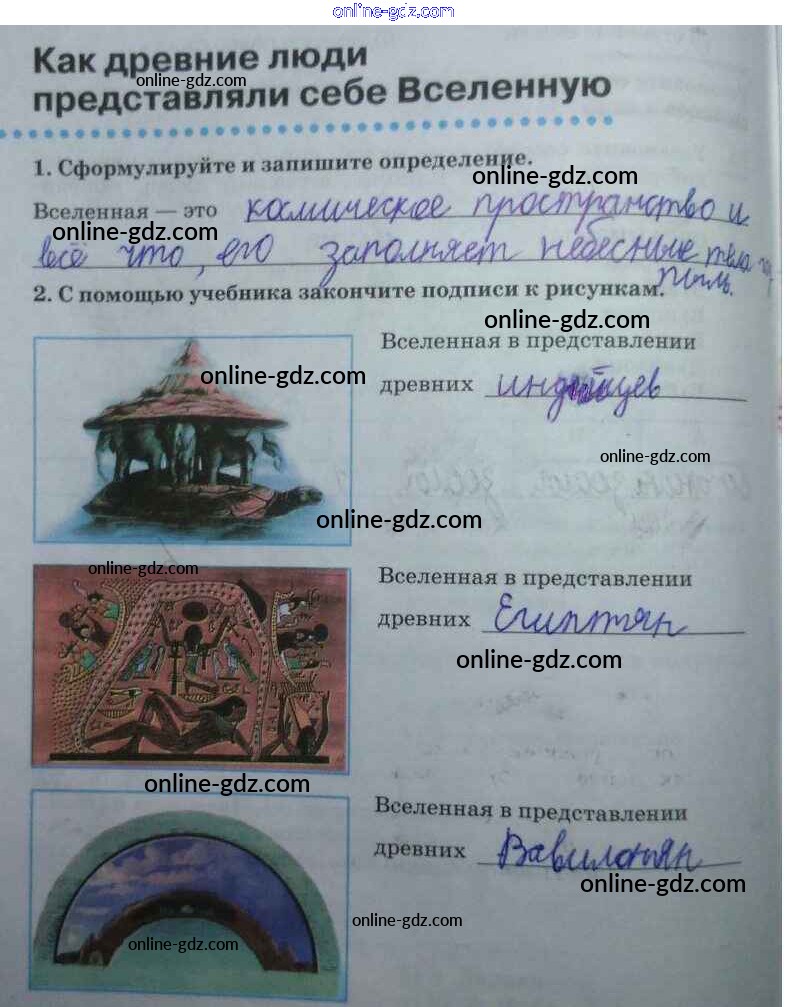 online-gdz.com
Как древние люди
online-gdz.com
представляли себе Вселенную
1. Сформулируйте и запишите определение.
online-gdz.com
Вселенная — это космическое пространство и
online-gdz.com
всё что, его заполняет небесные тела
пыль.
2. С помощью учебника закончите подписи к рисункам.
online-gdz.com
Вселенная в представлении
online-gdz.com
древних индийцев
online-gdz.com
online-gdz.com
online-gdz.com
Вселенная в представлении
древних Египтян
online-gdz.com
online-gdz.com
Вселенная в представлении
древних Вавилонян
online-gdz.com
online-gdz.com
online-gdz.com